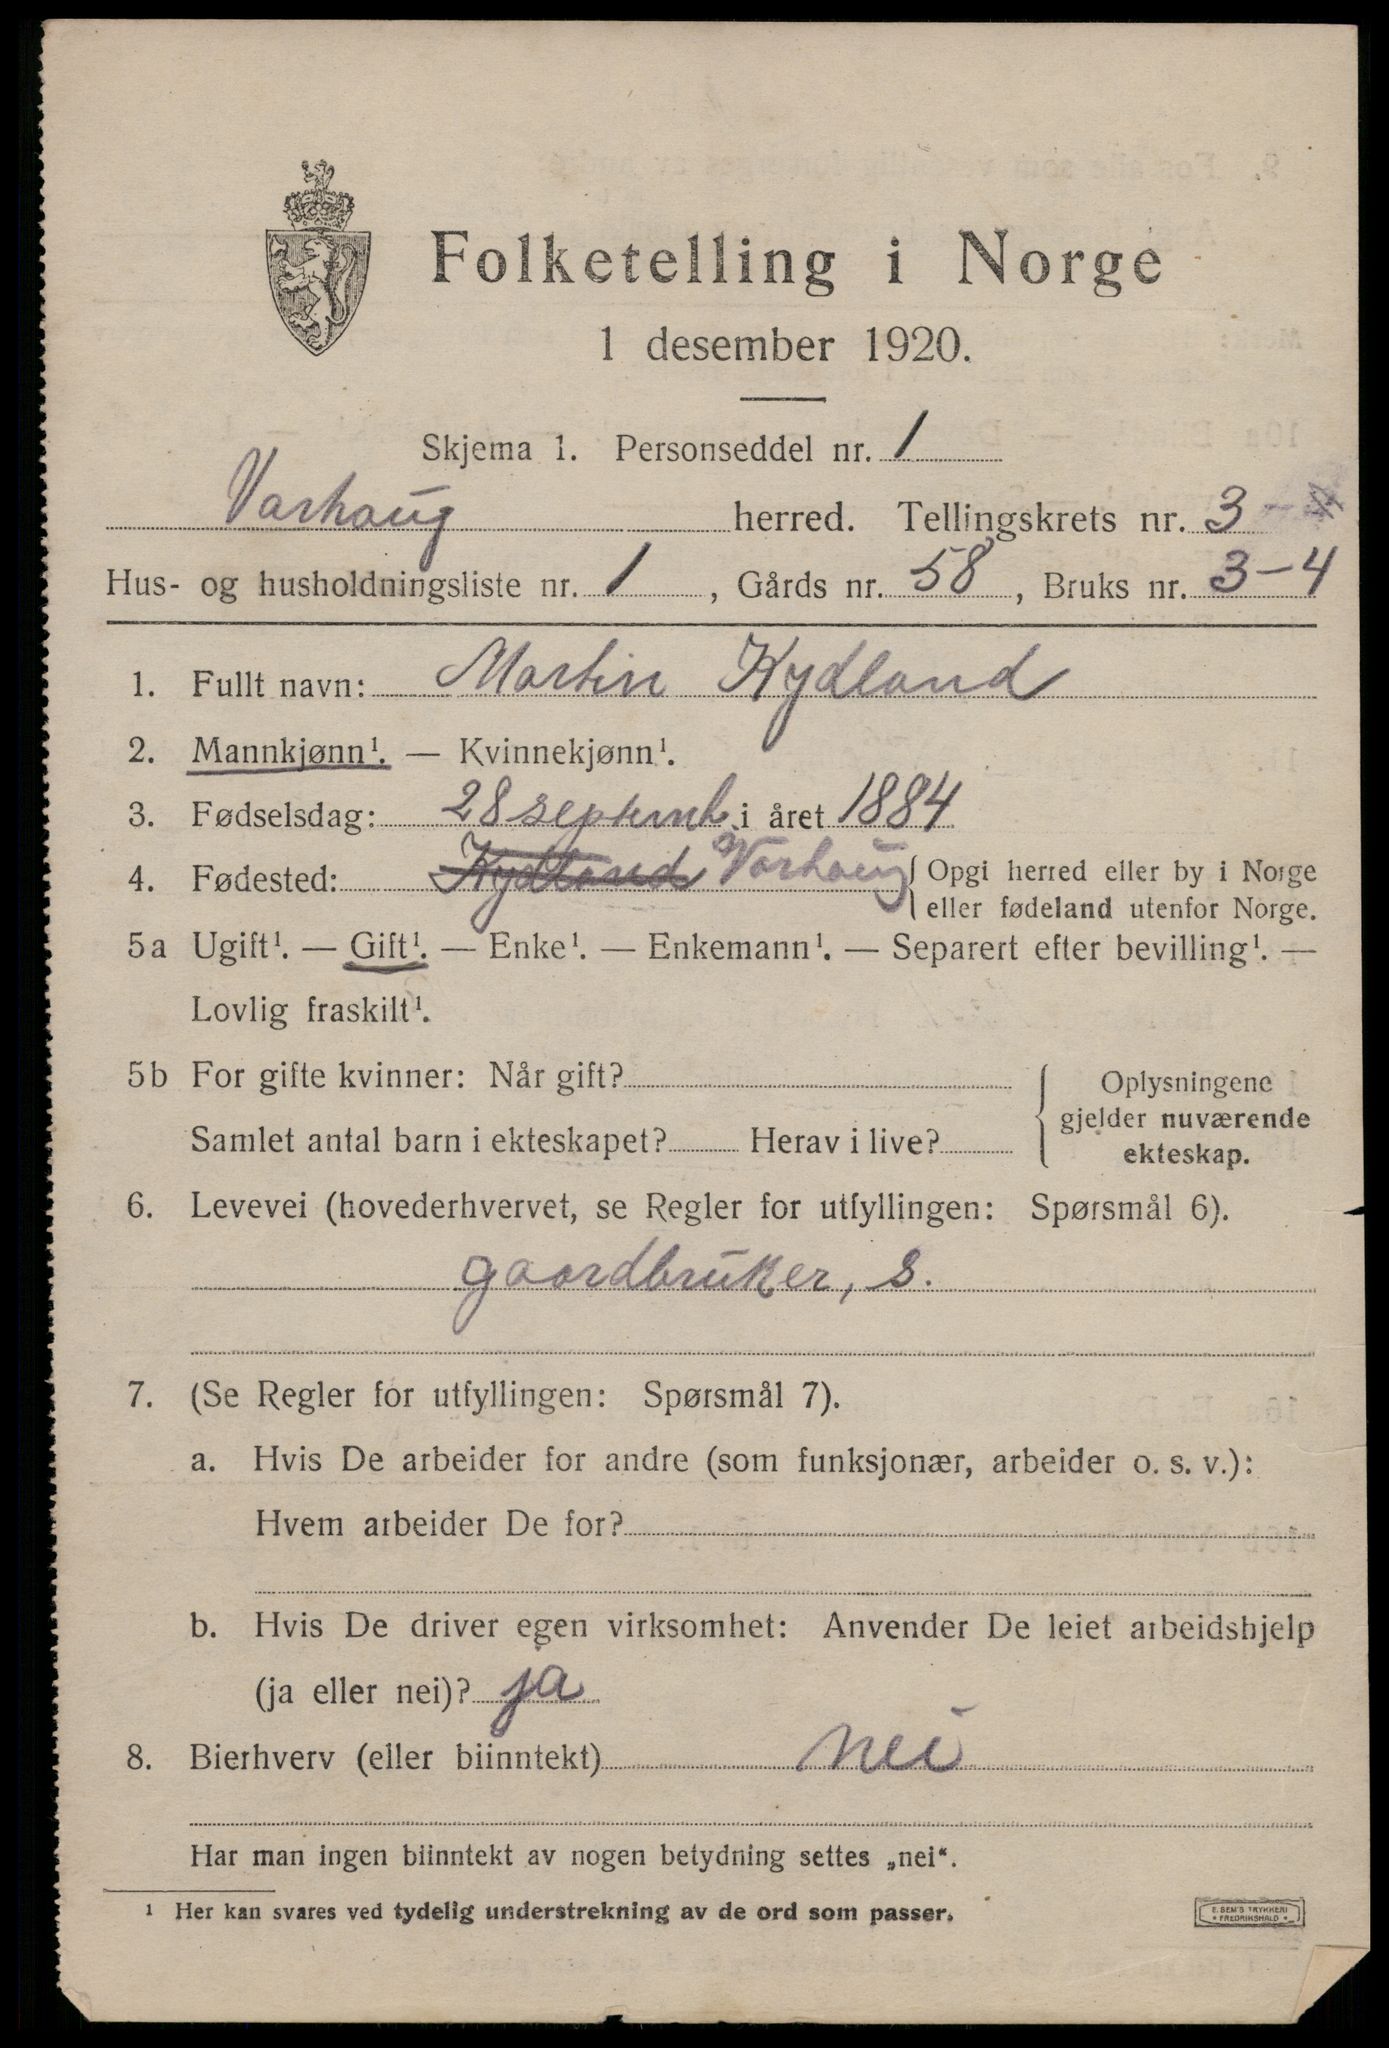 Folketelling i Norge
1 desember 1920.
Skjema 1. Personseddel nr. 1
Varhaug herred. Tellingskrets nr. 3
Hus- og husholdningsliste nr. 1, Gårds nr. 58, Bruks nr. 3-4
1. Fullt navn: Martin Kydland
2. Mannkjønn¹. — Kvinnekjønn¹.
3. Fødselsdag: 28 septemb i året 1884
4. Fødested: Kydland Varhaug { Opgi herred eller by i Norge
eller fødeland utenfor Norge.
5a Ugift¹. — Gift¹. — Enke¹. — Enkemann¹. — Separert efter bevilling¹. —
Lovlig fraskilt¹.
5b For gifte kvinner: Når gift?
Samlet antal barn i ekteskapet? Herav i live?
{ Oplysningene
gjelder nuværende
ekteskap.
6. Levevei (hovederhvervet, se Regler for utfyllingen: Spørsmål 6).
gaardbruker, s.
7. (Se Regler for utfyllingen: Spørsmål 7).
a. Hvis De arbeider for andre (som funksjonær, arbeider o. s. v.):
Hvem arbeider De for?
b. Hvis De driver egen virksomhet: Anvender De leiet arbeidshjelp
(ja eller nei)? ja
8. Bierhverv (eller biinntekt) nei
Har man ingen biinntekt av nogen betydning settes „nei“.
¹ Her kan svares ved tydelig understrekning av de ord som passer.
E. SEM'S TRYKKERI
* FREDRIKSHALD *